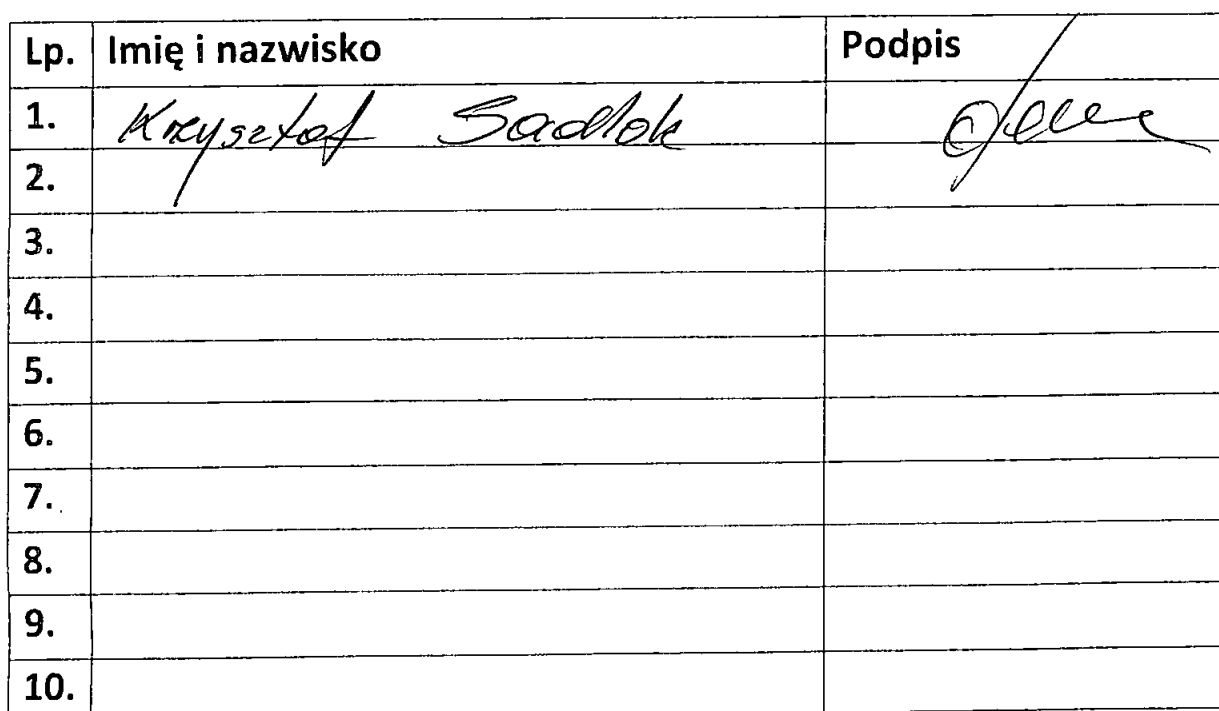 Lp. Imię i nazwisko Podpis
1. Krzysztof Sadlok
2.
3.
4.
5.
6.
7.
8.
9.
10.